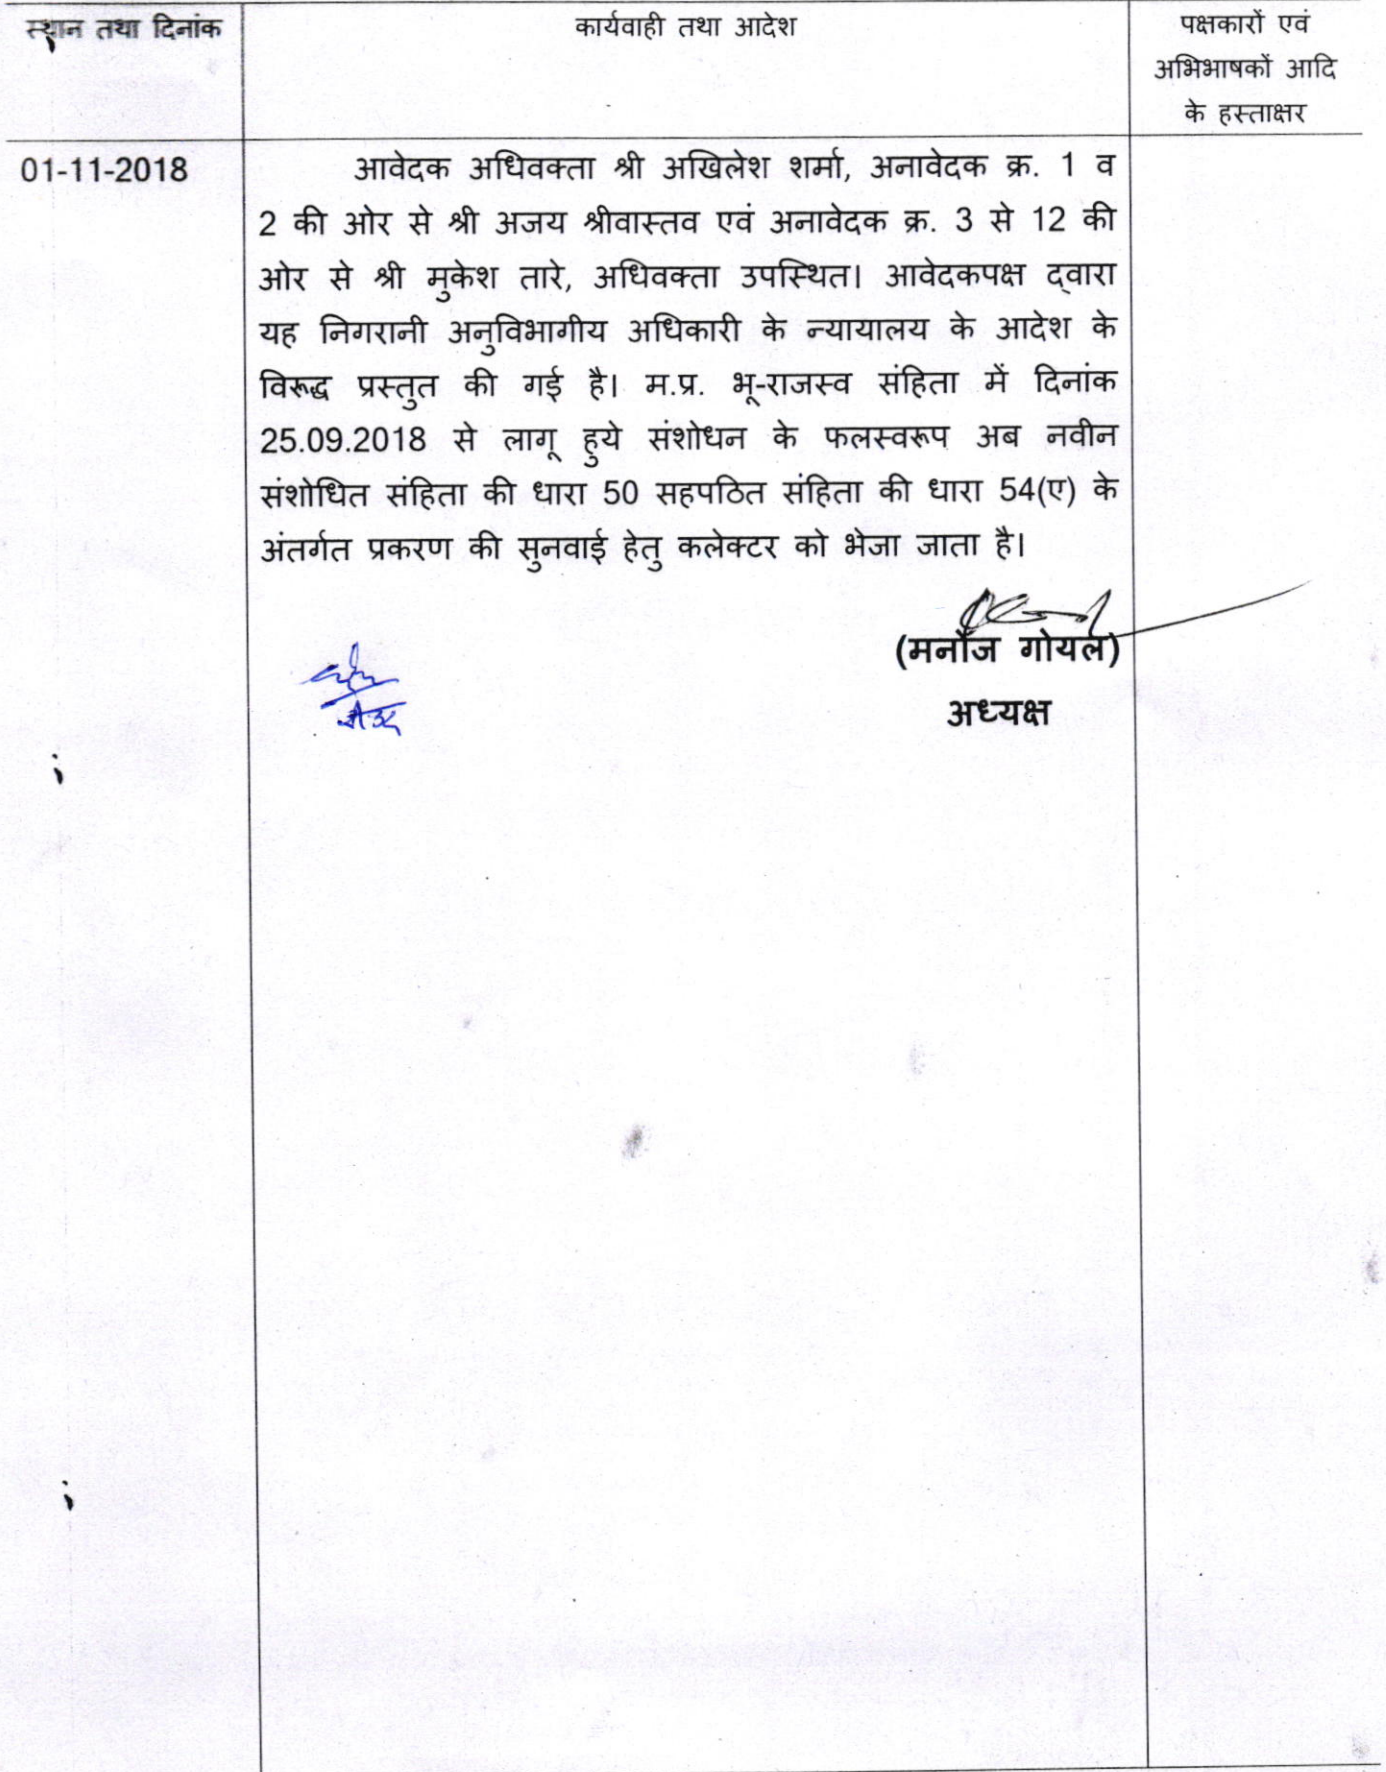 स्थान तथा दिनांक
कार्यवाही तथा आदेश
पक्षकारों एवं
अभिभाषकों आदि
के हस्ताक्षर
01-11-2018
आवेदक अधिवक्ता श्री अखिलेश शर्मा, अनावेदक क्र. 1 व
2 की ओर से श्री अजय श्रीवास्तव एवं अनावेदक क्र. 3 से 12 की
ओर से श्री मुकेश तारे, अधिवक्ता उपस्थित। आवेदकपक्ष द्वारा
यह निगरानी अनुविभागीय अधिकारी के न्यायालय के आदेश के
विरूद्ध प्रस्तुत की गई है। म.प्र. भू-राजस्व संहिता में दिनांक
25.09.2018 से लागू हुये संशोधन के फलस्वरूप अब नवीन
संशोधित संहिता की धारा 50 सहपठित संहिता की धारा 54(ए) के
अंतर्गत प्रकरण की सुनवाई हेतु कलेक्टर को भेजा जाता है।
(मनोज गोयल)
अध्यक्ष